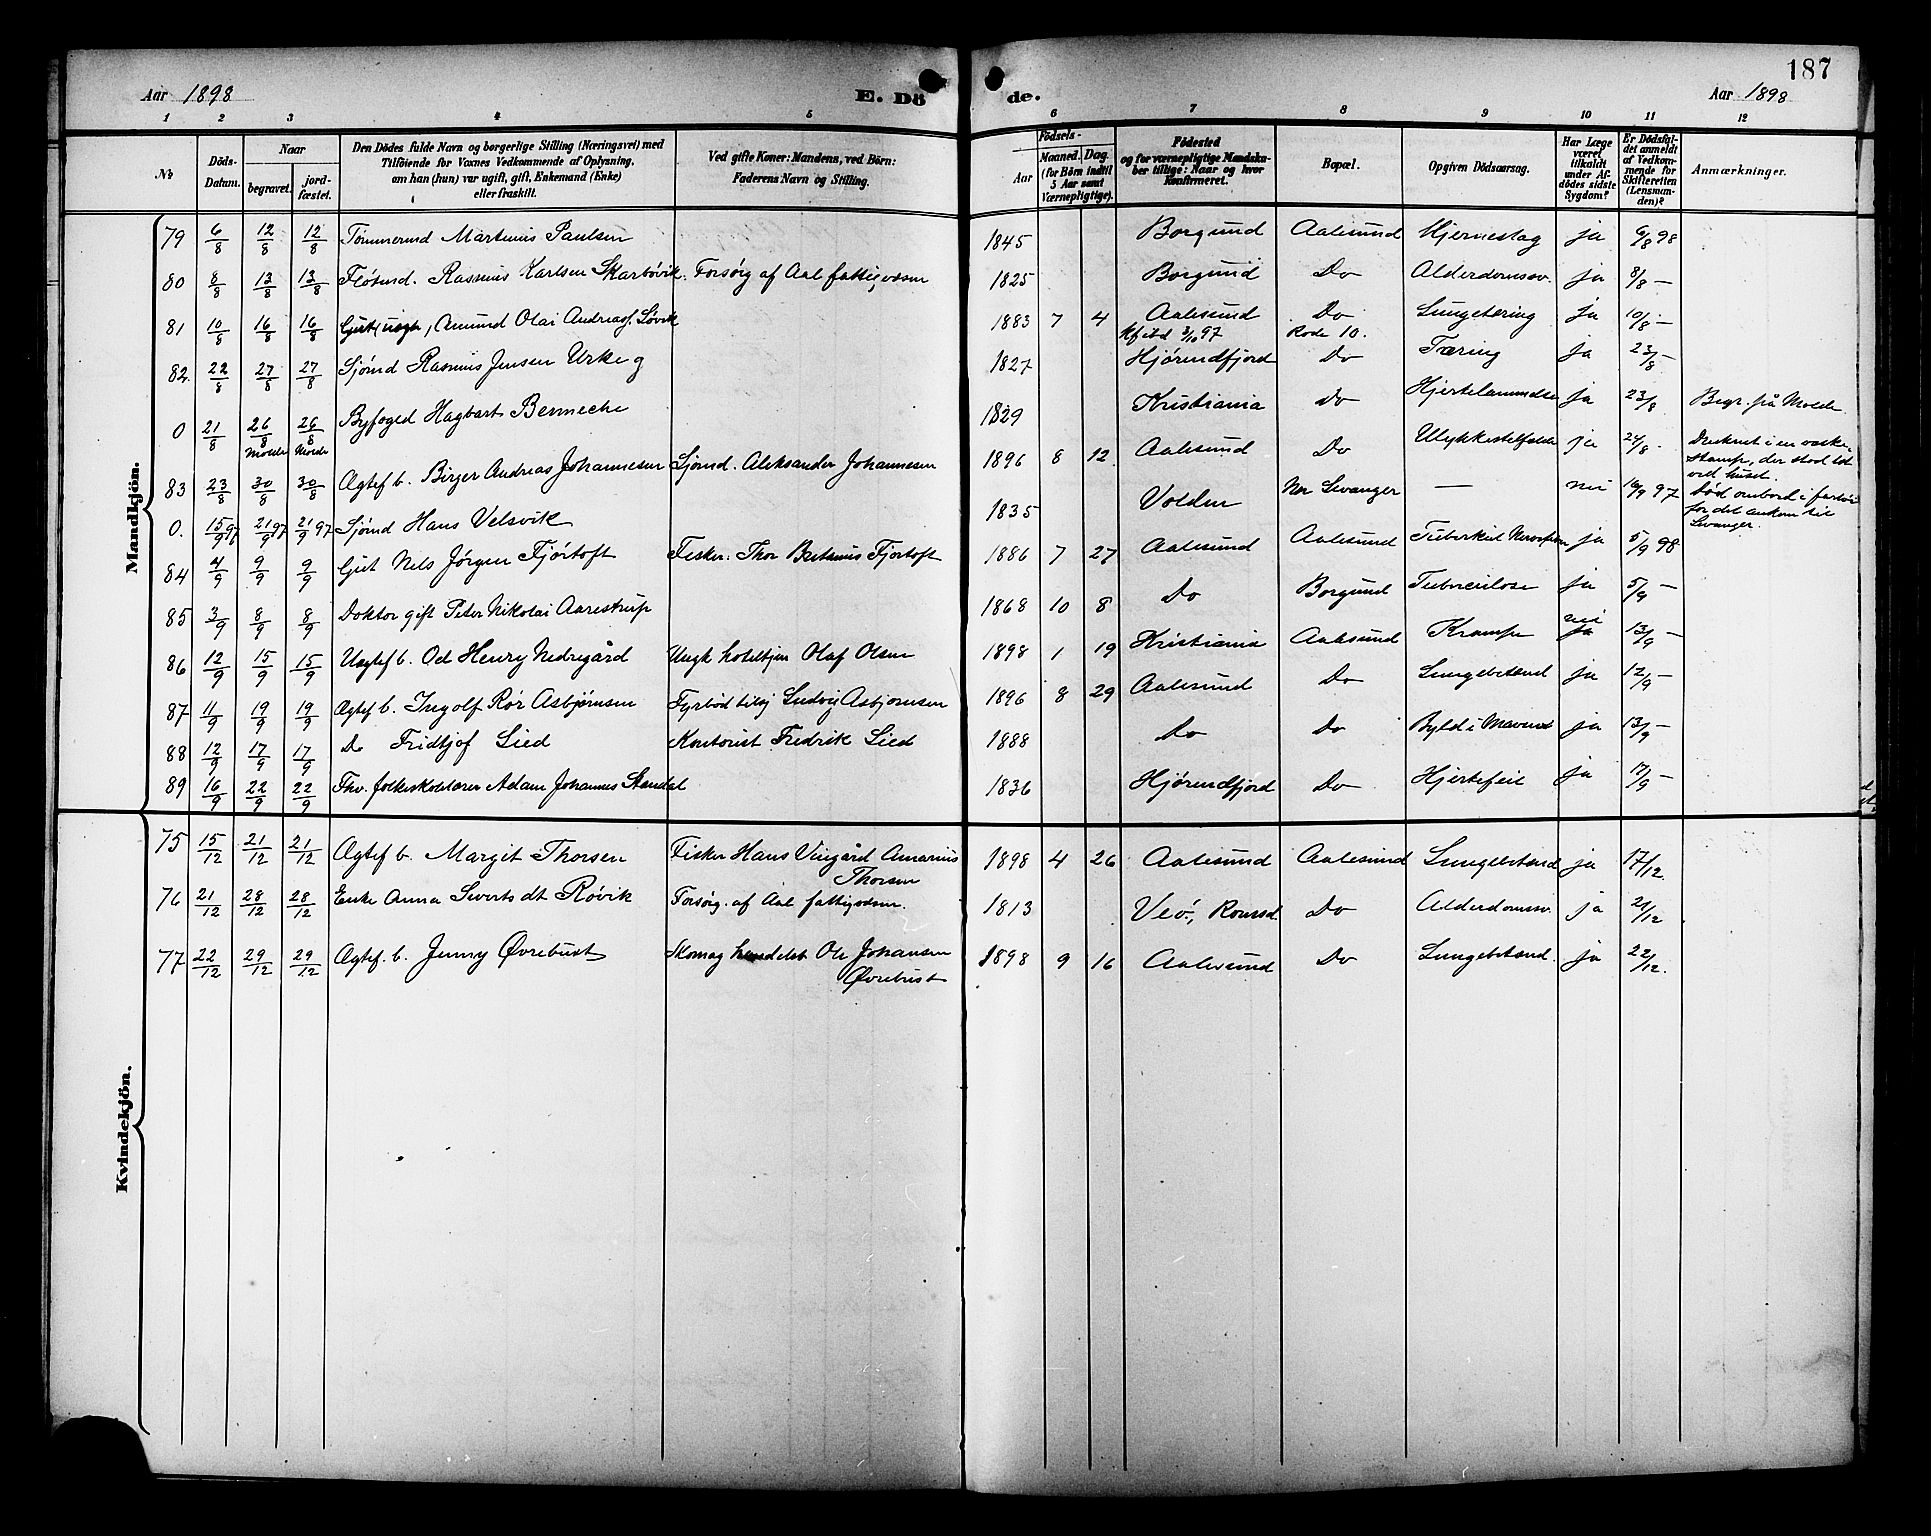 187
Aar 1898
E. Dö
de.
Aar 1898
1 2 3 4 5 6 7 8 9 10 11 12
No
Döds-
Datum.
Naar
begravet.
jord-
fæstet.
Den Dödes fulde Navn og borgerlige Stilling (Næringsvei) med
Tilföiende for Voxnes Vedkommende af Oplysning,
om han (hun) var ugift, gift, Enkemand (Enke)
eller fraskilt.
Ved gifte Koner: Mandens, ved Börn:
Faderens Navn og Stilling.
Födsels-
Aar
Maaned. Dag.
(for Börn indtil
5 Aar samt
Værnepligtige).
Födested
og for værnepligtige Mandska-
ber tillige: Naar og hvor
Konfirmeret.
Bopæl.
Opgiven Dödsaarsag.
Har Læge
været
tilkaldt
under Af-
dödes sidste
Sygdom?
Er Dödsfal-
det anmeldt
af Vedkom-
mende for
Skifteretten
(Lensman-
den)?
Anmærkninger.
Mandkjön.
79 6/8 12/8 12/8 Tömmermd Martinus Paulsen 1845 Borgund Aalesund Hjerneslag ja 6/8 98
80 8/8 13/8 13/8 Flösmd. Rasmus Karlsen Skarbövik. Forsörg af Aal fattigvæsen 1825 Borgund Do Alderdomssv. ja 8/8 —
81 10/8 16/8 16/8 Gut, Amund Olai Andreass. Lövik 1883 7 4 Aalesund Do Lungetæring ja 10/8 —
Kf ibd 3/10 97 Rode 10.
82. 22/8 27/8 27/8 Sjömd Rasmus Jensen Urke g 1827 Hjörendfjord Do Tæring ja 23/8 —
0 21/8 26/8 26/8 Byfoged Hagbart Bernneche 1829 Kristiania Do ja 23/8 Begr. på Molde
Molde Molde
83 23/8 30/8 30/8 Ægtef b. Birger Andreas Johannesen Sjömd. Aleksander Johannesen 1896 8 12 Aalesund Do Ulykkestilfælde ja 24/8 - Druknet i en vaske
stamp, der stod tæt
ved huset.
0. 15/9 97 21/9 97 21/9 97 Sjömd Hans Velsvik 1835 Volden Levanger — nei 16/9 97 Död ombord i fartöi
för det ankom til
Levanger.
84 4/9 9/9 9/9 Gut Nels Jörgen Fjörtoft Fisker. Thor Fjörtoft 1886 7 27 Aalesund Aalesund Tuberkul ja 5/9 98
85 3/9 8/9 8/9 Doktor gift Peter Nikolai Aarestrup 1868 10 8 Do Borgund ja 5/9 —
86 12/9 15/9 15/9 Uægtef b. Od Henry Nedregård Ungk Olaf Olsen 1898 1 19 Kristiania Aalesund Krampe nei ja 13/9 —
87 11/9 19/9 19/9 Ægtef b. Ingolf Rör Asbjörnsen Fyrböd Ludvig Asbjörnsen 1896 8 29 Aalesund Do Lungebetænd ja 12/9 —
88 12/9 17/9 17/9 Do Fridtjof Lied Kontorist Fredrik Lied 1888 Do Do Byld i Maven ja 13/9 —
89 16/9 22/9 22/9 Fhv. folkeskolelærer Adam Johannes Standal 1836 Hjörendfjord Do Hjertefeil ja 17/9 —
Kvindekjön.
75 15/12 21/12 21/12 Ægtef b. Margit Thorsen Fisker Hans Vingård Amarius 1898 4 26 Aalesund Aalesund Lungebetænd ja 17/12.
Thorsen
76 21/12 28/12 28/12 Enke Anna Siverts dt Rövik Forsörg. af Aal fattigvæsen. 1813 Veö, Romsd. Do Alderdomssv. ja 21/12
77 22/12 29/12 29/12 Ægtef. b. Jenny Øvrebust Skomag Ole Johansen 1898 9 16 Aalesund Do Lungebetænd. ja 22/12.
Øvrebust